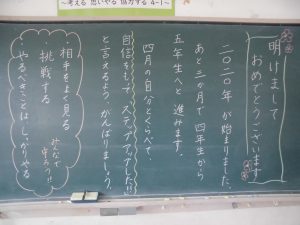 ～考える 思いやる 協力する 4-1～
明けまして
おめでとうございます
二〇二〇年が始まりました。
あと三か月で四年生から
五年生へと進みます。
四月の自分とくらべて
自信をもって、ステップアップしました!!
と言えるよう、がんばりましょう。
・相手をよく見る
・挑戦する
・やるべきことは、しっかりやる
みんなで
守ろう!!